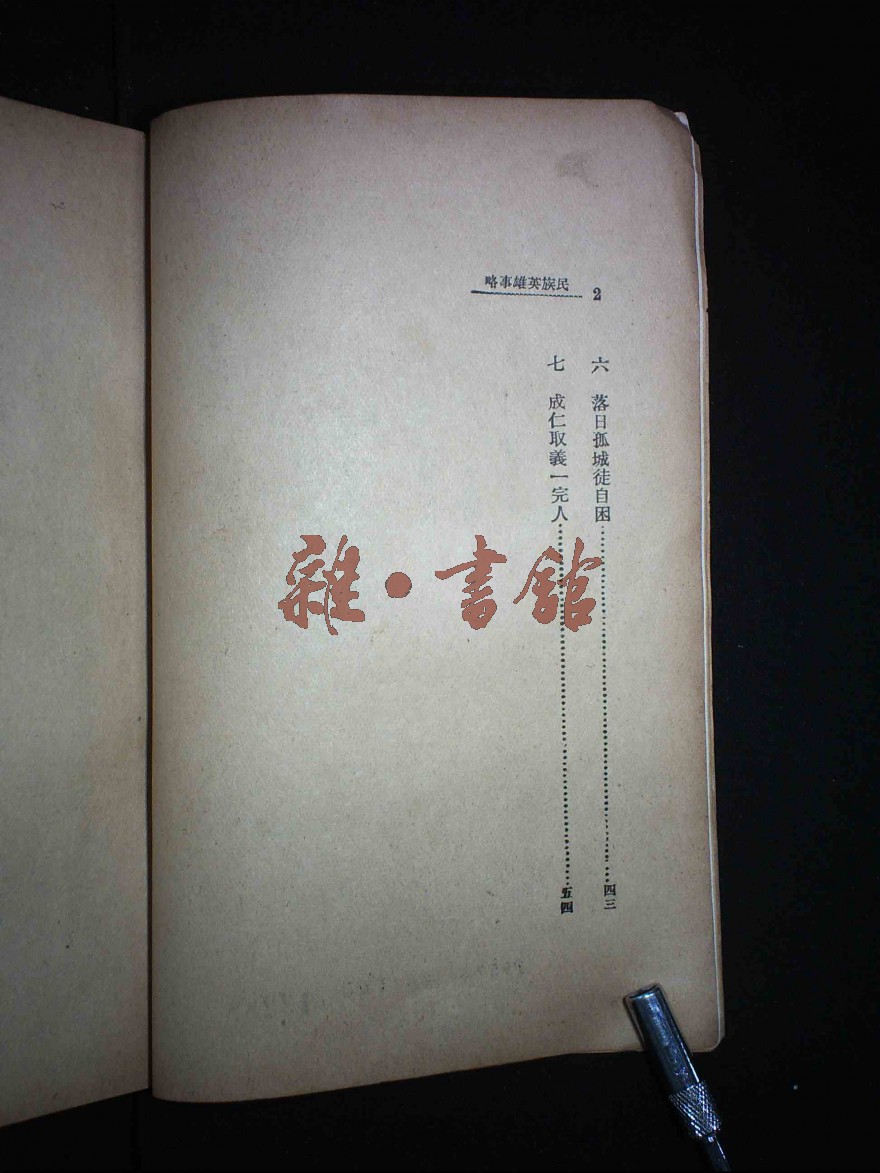 略事雄英族民
2
六 落日孤城徒自困……四三
七 成仁取義一完人……五四
雜·書館